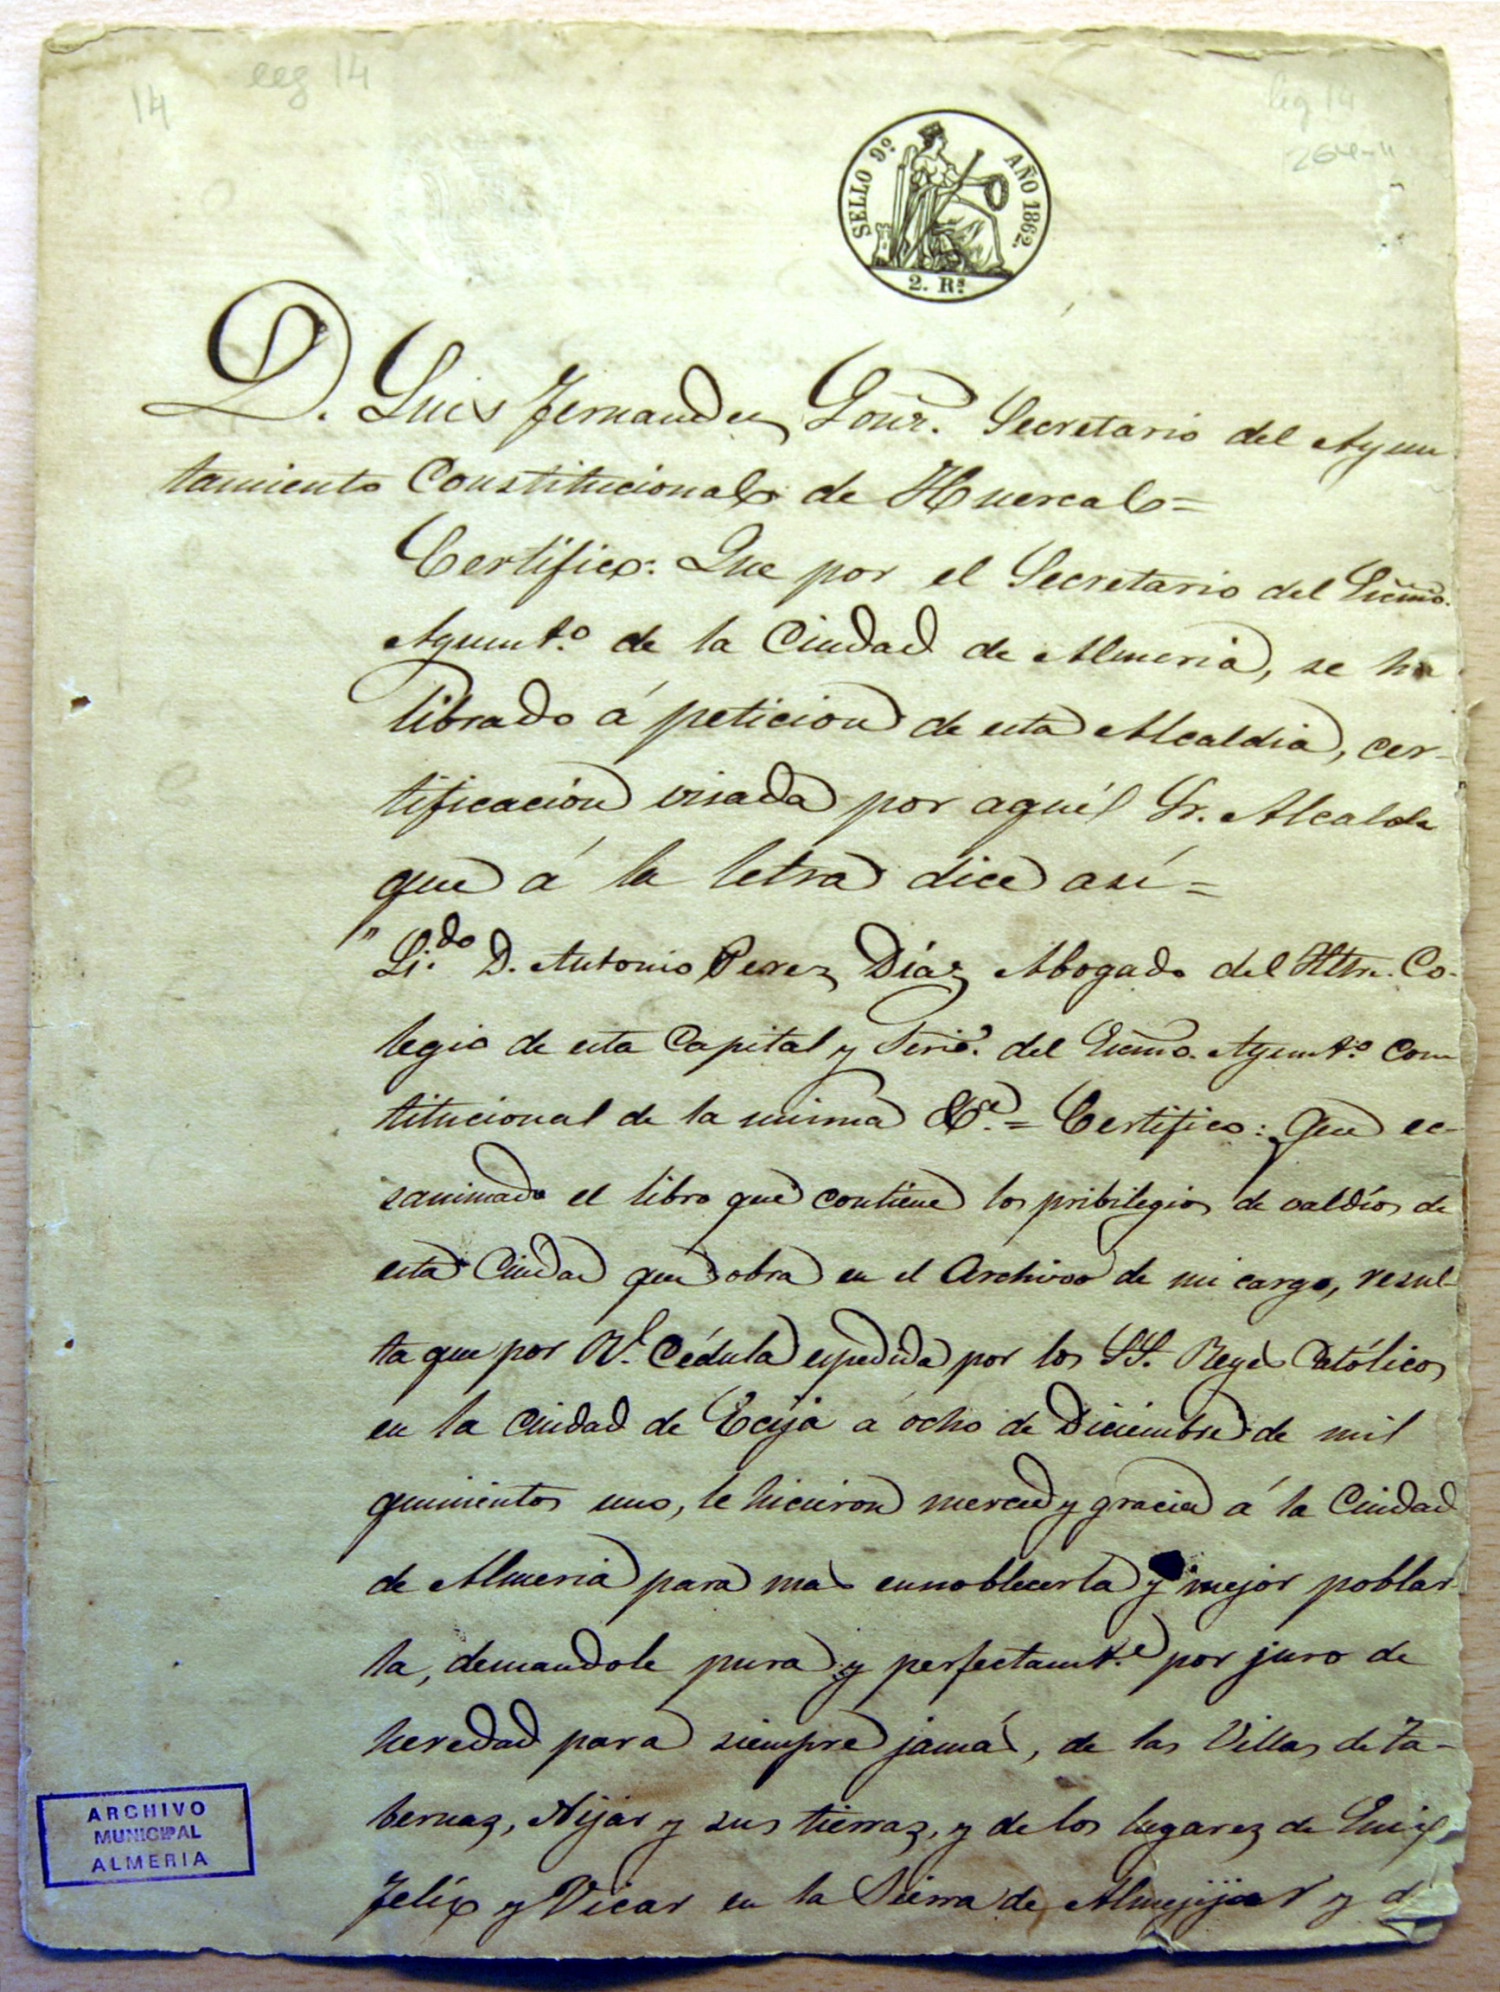 14
leg 14
leg 14
264-11
SELLO 9º AÑO 1862.
2. Rs
D. Luis Fernandez Gonz. Secretario del Ayun
tamiento Constitucional de Huercal =
Certifico: Que por el Secretario del Ecsmo.
Ayunt.o de la Ciudad de Almeria, se ha
librado á peticion de esta Alcaldia, cer-
tificación visada por aquél Sr. Alcalde
que á la letra dice así =
" Li.do D. Antonio Perez Díaz Abogado del Iltre. Co-
legio de esta Capital y Srio. del Ecmo. Ayunt.o Cons
titucional de la misma &.a = Certifico: Que ec-
saminado el libro que contiene los pribilegios de valdíos de
esta Ciudad que obra en el Archivo de mi cargo, resul-
ta que por Rl. Cédula espedida por los SS. Reyes Católicos
en la Ciudad de Ecija a ocho de Diciembre de mil
quinientos uno, le hicieron merced y gracia á la Ciudad
de Almeria para mas ennoblecerla y mejor poblar-
la, demandole pura y perfectamt.e por juro de
heredad para siempre jamás, de las Villas de Ta-
bernas, Nijar y sus tierras, y de los lugares de Enix
Felíx y Vicar en la Sierra de Almejijar y d
ARCHIVO
MUNICIPAL
ALMERIA